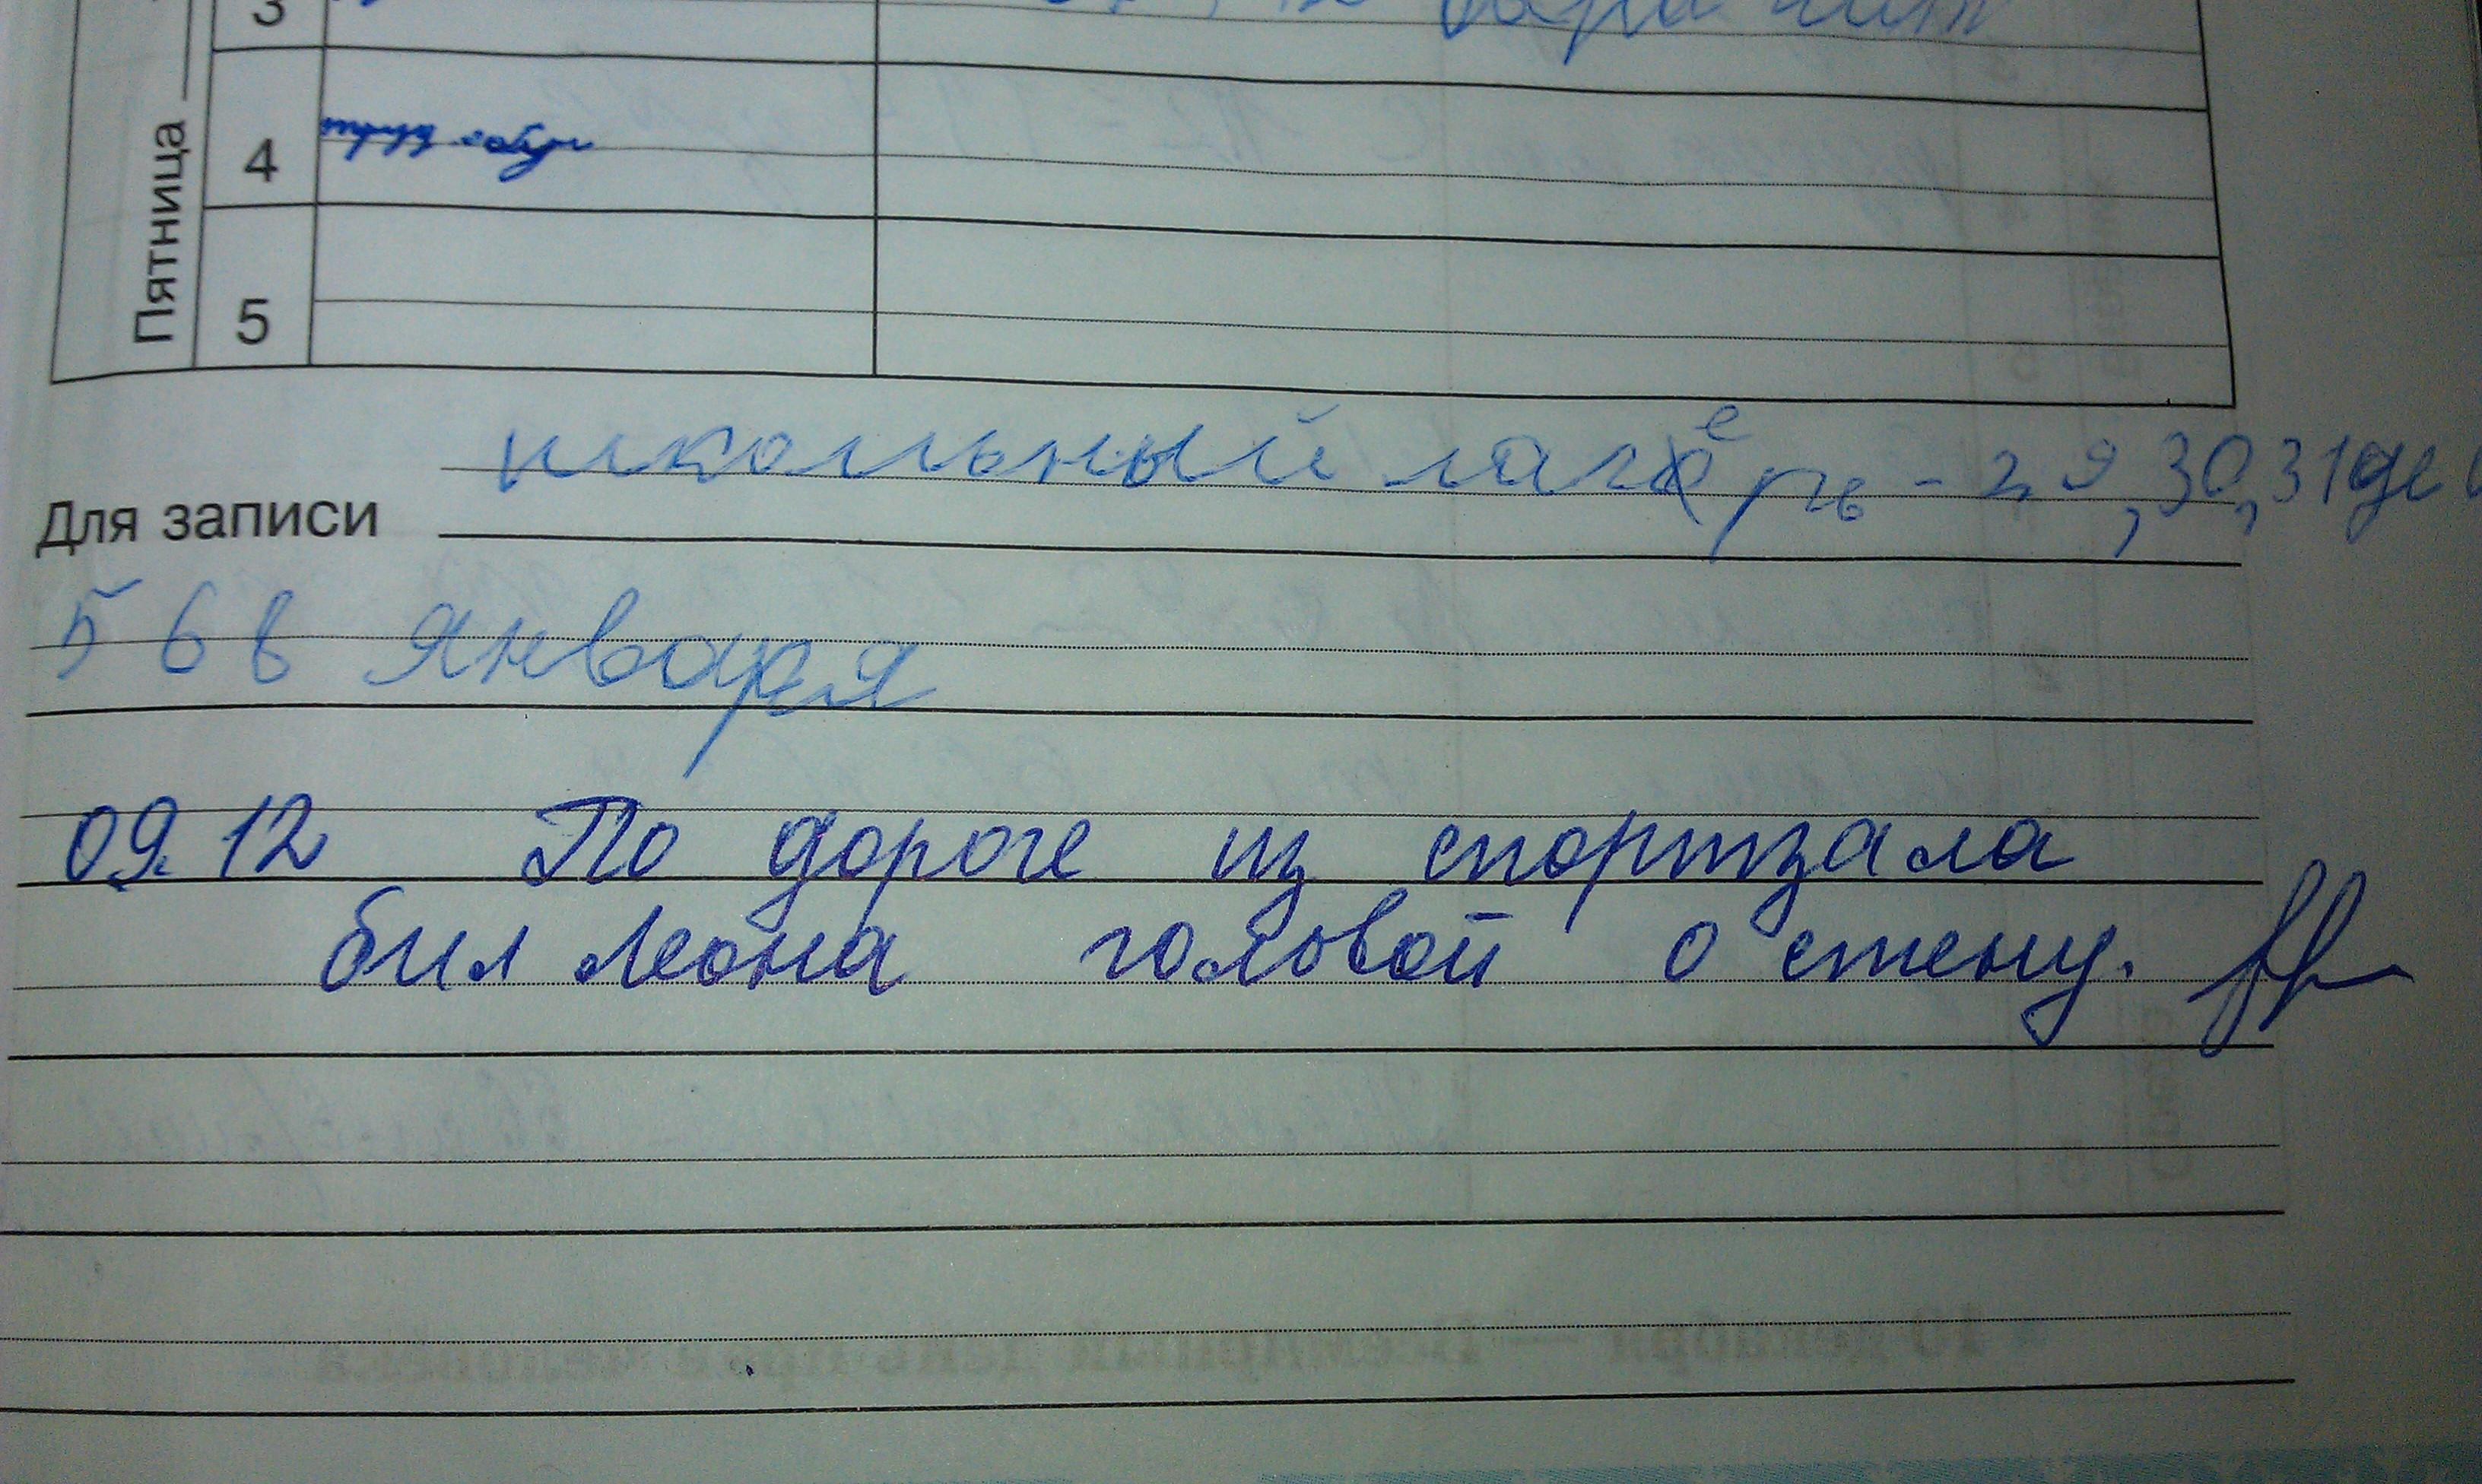 3
Пятница
4
5
школьный лагерь - 29, 30, 31 де
Для записи
5 6 8 января
09.12 По дороге из спортзала
бил Леона головой о стену.